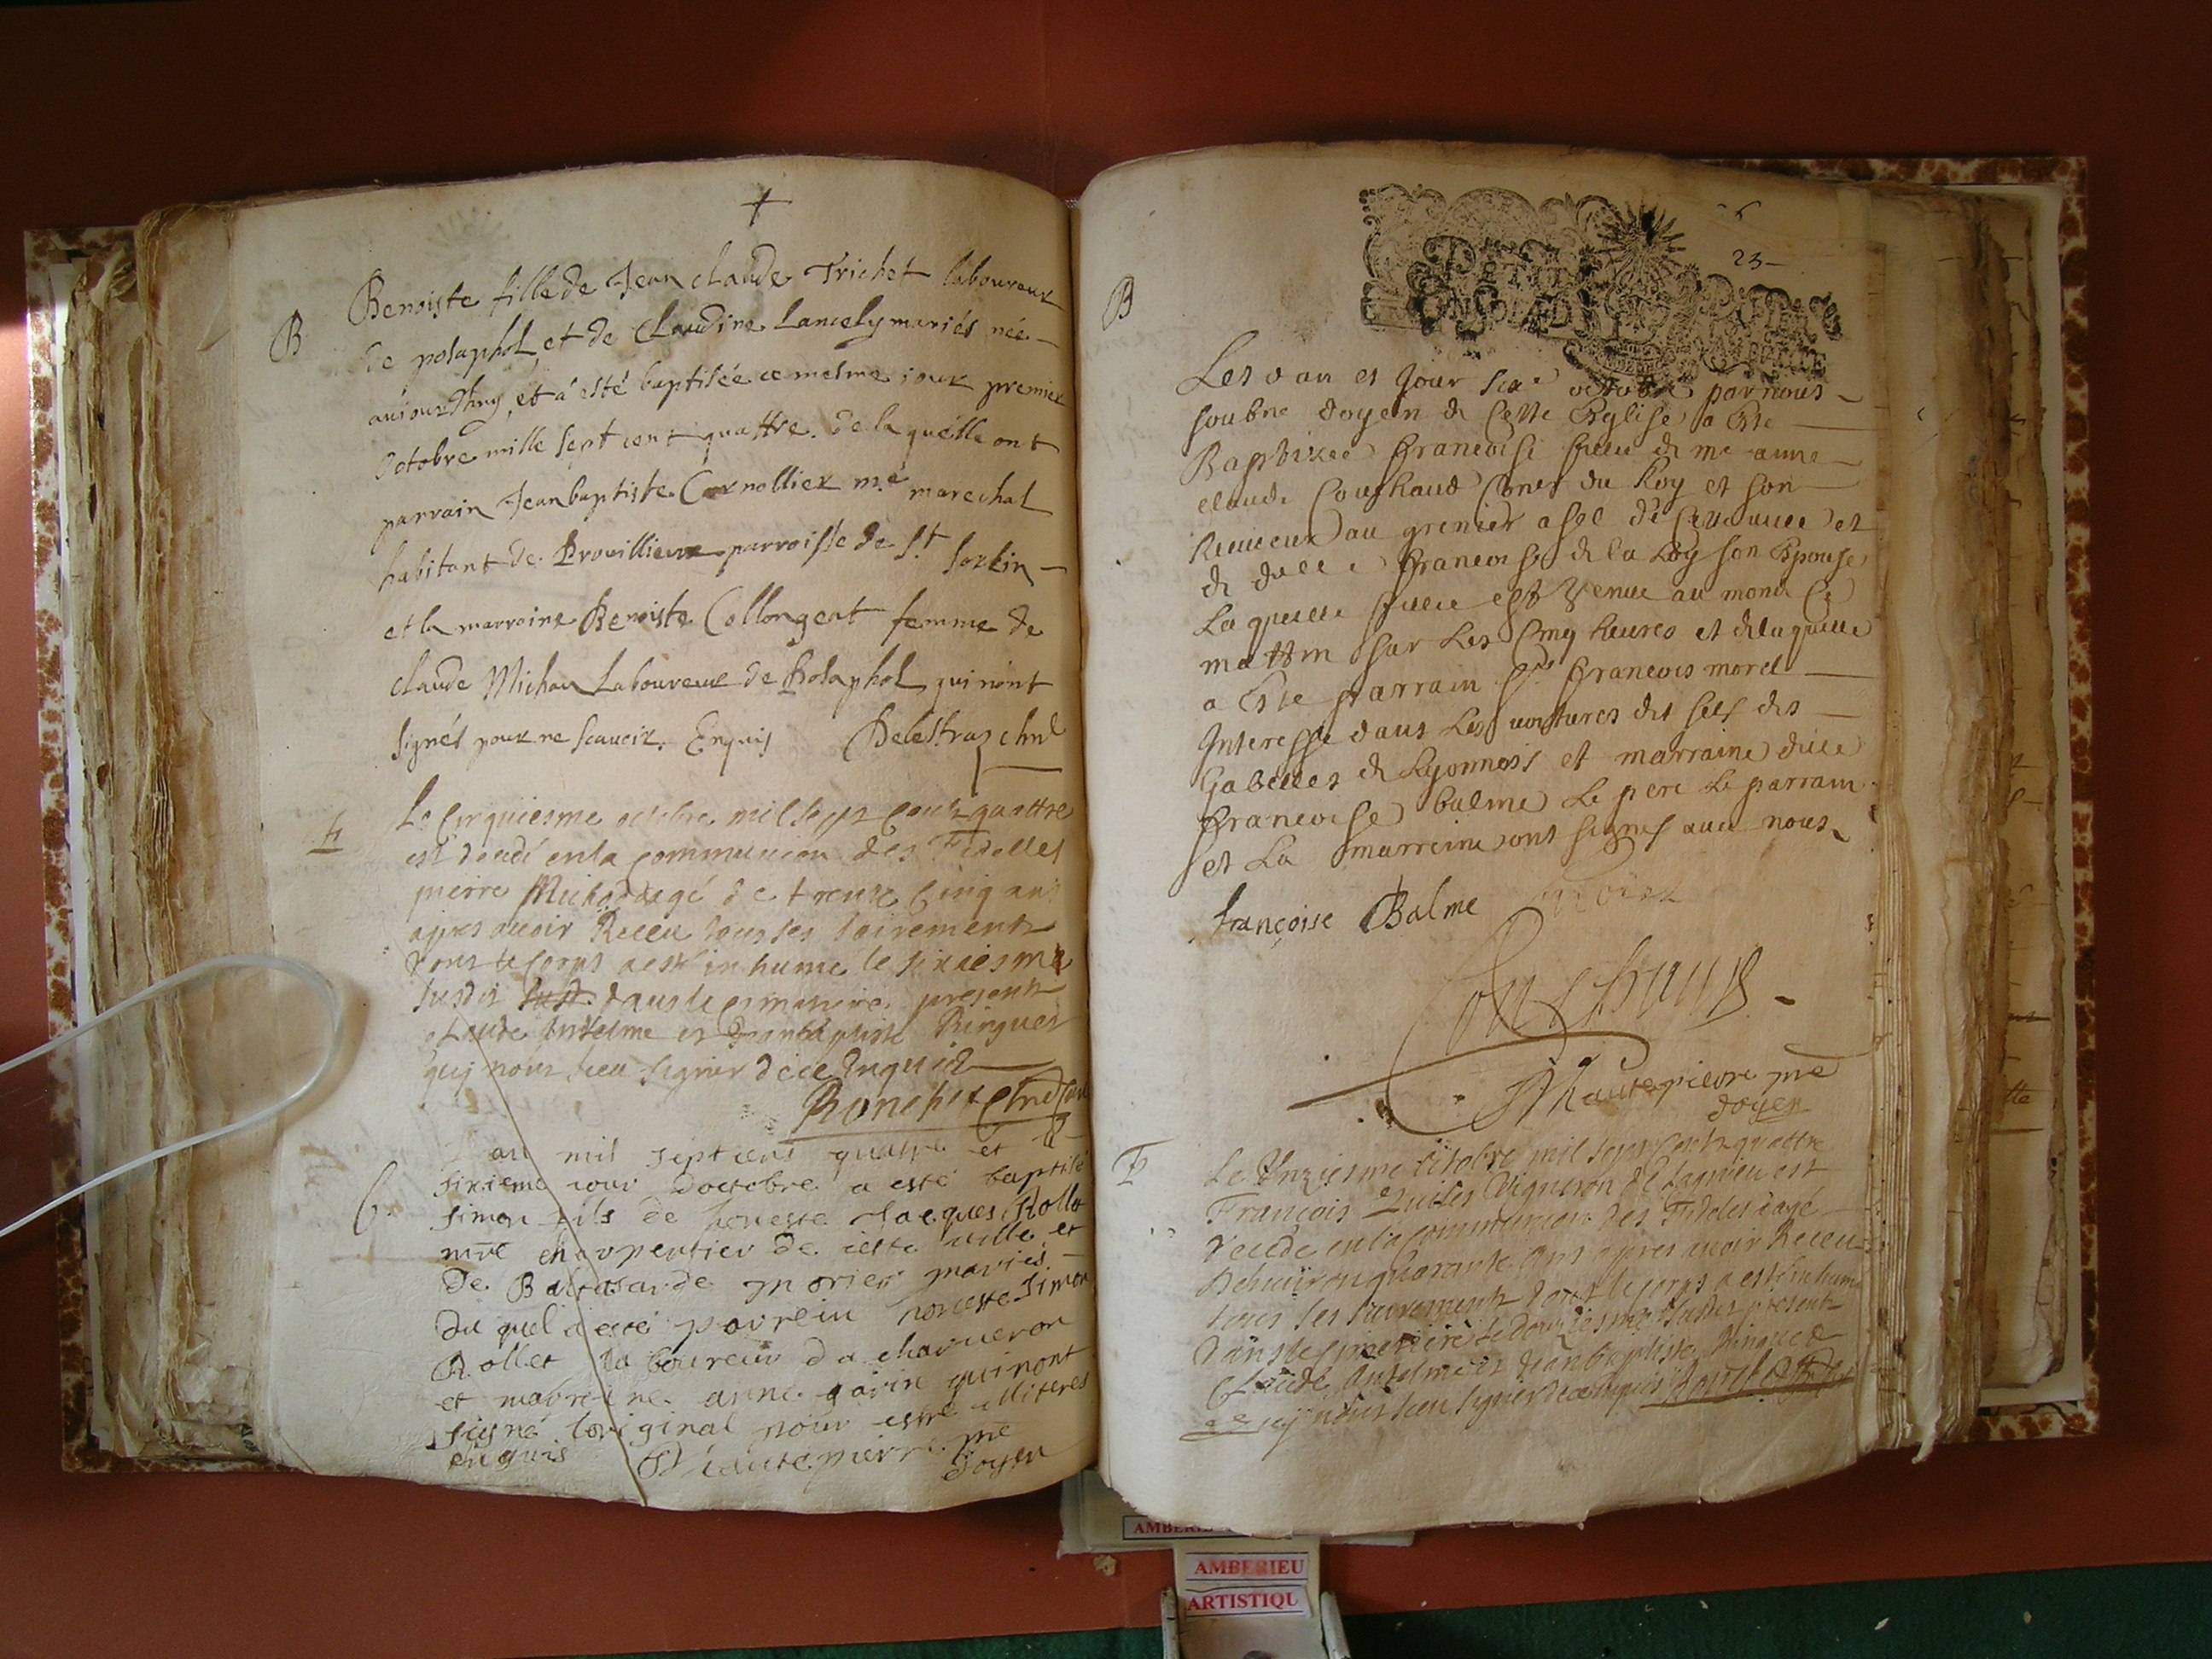 B
Benoiste fille de Jean claude Trichet laboureur
de polaphol et de Claudine Lancely mariés née
aujourdhuy et á esté baptisée ce mesme jour premier
octobre mille sept cent quattre. de la quélle ont
parrain Jean baptiste Cornollier m.e marechal
habitant de Provillieux parroisse de S.t Sorlin
et la marraine Benoiste Collongeat femme de
claude Michou Laboureur de Polaphol qui n'ont
signés pour ne scavoir. Enquis
Le cinquiesme octobre mil sept cent quattre
est décedé en la communion des Fidelles
pierre Michod agé de trente cinq ans
apres avoir Receu tous ses sacrements
dont le corps a esté inhumé le sixiesme
susdit dans le cimetiere present
claude Antelme et Jean baptiste Ringuet
quj n'ont sceu signer de ce Enquis
L'an mil sept cent quatre et le
sixieme jour doctobre a esté baptisé
simon fils de honeste Jacques Rollet
mre charpentier de ceste ville et
de Baltasarde mariés
du quel a esté parrein honeste Simon
Rollet laboureur da charveron
et marreine anne qui n'ont
signé loriginal pour estre illiteres
enquis D hautepierre pre
doyen
23
B
Led an et Jour six.e octobre par nous
soubne doyen de Cette Eglise a Este
Baptizee francoise fille de me anne
claude Couchaud Coner du Roy et son
Receveur au grenier a sel de Cette ville et
de dalle francoise de la Roy son Epouse
Laquelle fille est Venue au monde Ce
mattin sur Les Cinq heures et de laquelle
a Este parrain sr francois morel
Interesse dans Les voitures des sels des
Gabelles de Lyonnois et marraine dlle
francoise balme Le pere Le parrain
et La marraine ont signes avec nous
françoise Balme morel
Couchaud
D hautepierre pre
doyen
Le Unziesme octobre mil sept cent quattre
François Vigneron de Lagnieu est
decedé en la communion des Fideles âgé
denviron quarante ans apres avoir Receu
tous ses sacrements dont le corps a esté inhumé
dans le cimetiere le douziesme susdit present
Claude Antelme et Jean baptiste Ringuet
quj n'ont sceu signer de ce enquis
AMBERIEU
ARTISTIQU